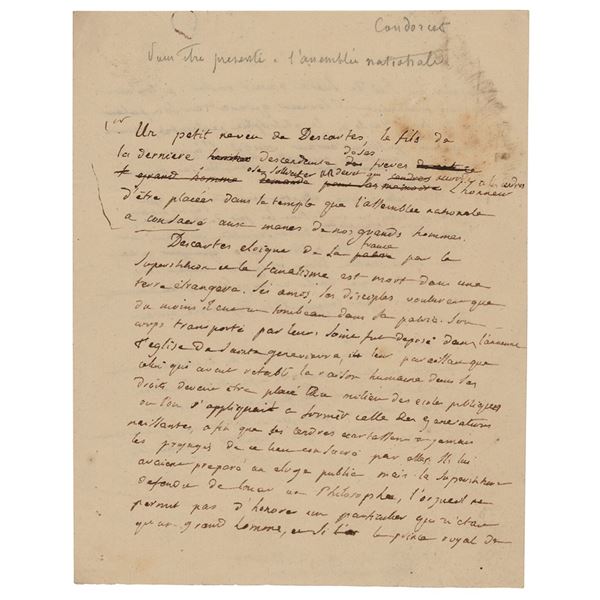 Condorcet
présenté à l'assemblée nationale
Un petit neveu de Descartes, le fils de
la derniere descendante des freres
ose solliciter pour les cendres l'honneur
d'être placées dans le temple que l'assemblée nationale
a consacré aux manes de nos grands hommes.
Descartes eloigné de la france par la
superstition et le fanatisme est mort dans une
terre étrangere. Ses amis, ses disciples voulurent que
du moins il eut un tombeau dans sa patrie. Son
corps transporté par leurs soins fut deposé dans l'ancienne
eglise de Sainte genevieve il leur paraissait que
celui qui avait retabli la raison humaine dans ses
droits devait être placé au milieu des ecoles publiques
ou l'on s'appliquait a former celle des generations
naissantes, afin que ses cendres ecartassent a jamais
les prejugés de ce lieu consacré par elles. Ils lui
avaient preparé un eloge public mais la superstition
defendit de louer un Philosophe, l'orgueil ne
permit pas d'honorer un particulier qui n'etait
qu'un grand homme, et si le prince royal de